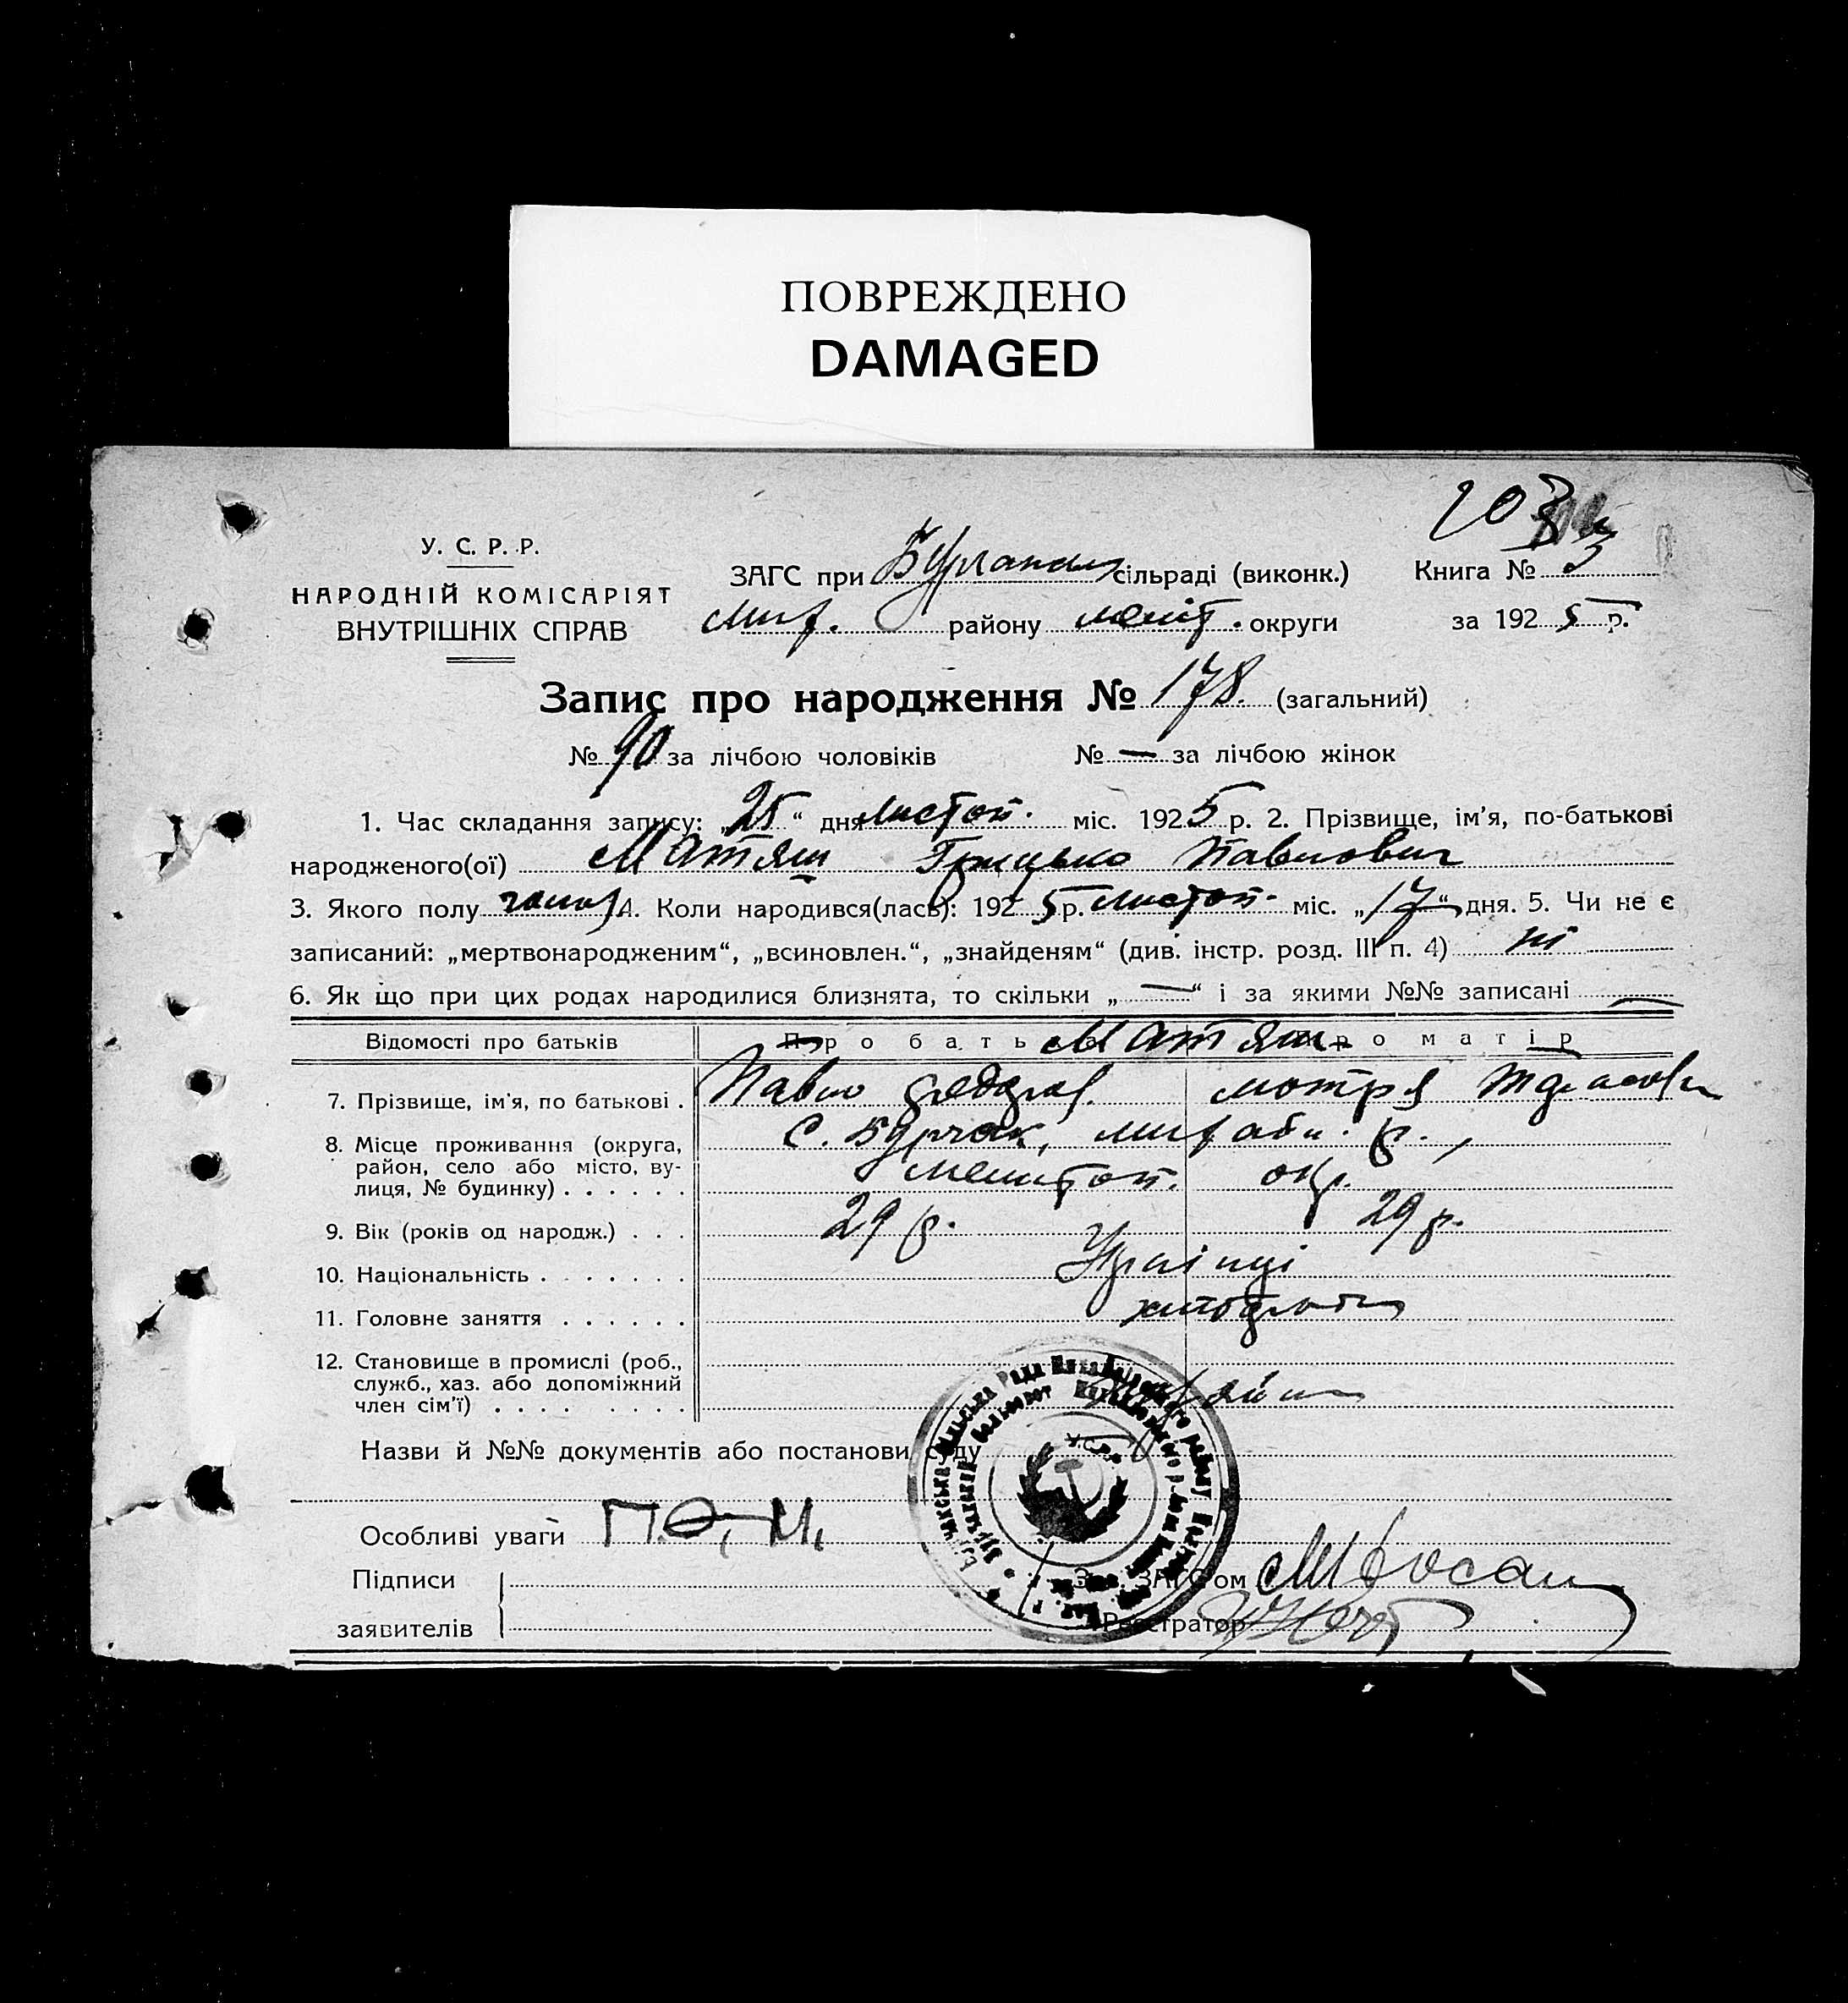 ПОВРЕЖДЕНО
DAMAGED
203
У. С. Р. Р.
НАРОДНІЙ КОМІСАРІЯТ
ВНУТРІШНІХ СПРАВ
ЗАГС при сільраді (виконк.)
Мих. району меліт. округи
Книга № 3
за 1925 р.
Запис про народження № 178. (загальний)
№ 90 за лічбою чоловіків № — за лічбою жінок
1. Час складання запису: „25“ дня листоп. міс. 1925 р. 2. Прізвище, ім'я, по-батькові
народженого(ої) Матяш Грицько Павлович
3. Якого полу чолов. 4. Коли народився(лась): 1925 р. листоп. міс. „17“ дня. 5. Чи не є
записаний: „мертвонародженим“, „всиновлен.“, „знайденям“ (див. інстр. розд. III п. 4) ні
6. Як що при цих родах народилися близнята, то скільки „—“ і за якими №№ записані —
Відомості про батьків Про батька Матяш Про матір
7. Прізвище, ім'я, по батькові . Павло Федоров. Мотря Тарасовн
8. Місце проживання (округа, с. Бурчак, михайл. р.,
район, село або місто, ву-
лиця, № будинку) . . . . . . Мелитоп. окр.
9. Вік (років од народж.) . . . 29 р. 29 р.
10. Національність . . . . . . . Українці
11. Головне заняття . . . . . . хлібороби
12. Становище в промислі (роб.,
служб., хаз. або допоміжний
член сім'ї) . . . . . . . .
Назви й №№ документів або постанови суду
Особливі уваги П.О, М,
Підписи
заявителів
Зав. ЗАГС'ом
Реєстратор
У.С.Р.Р.